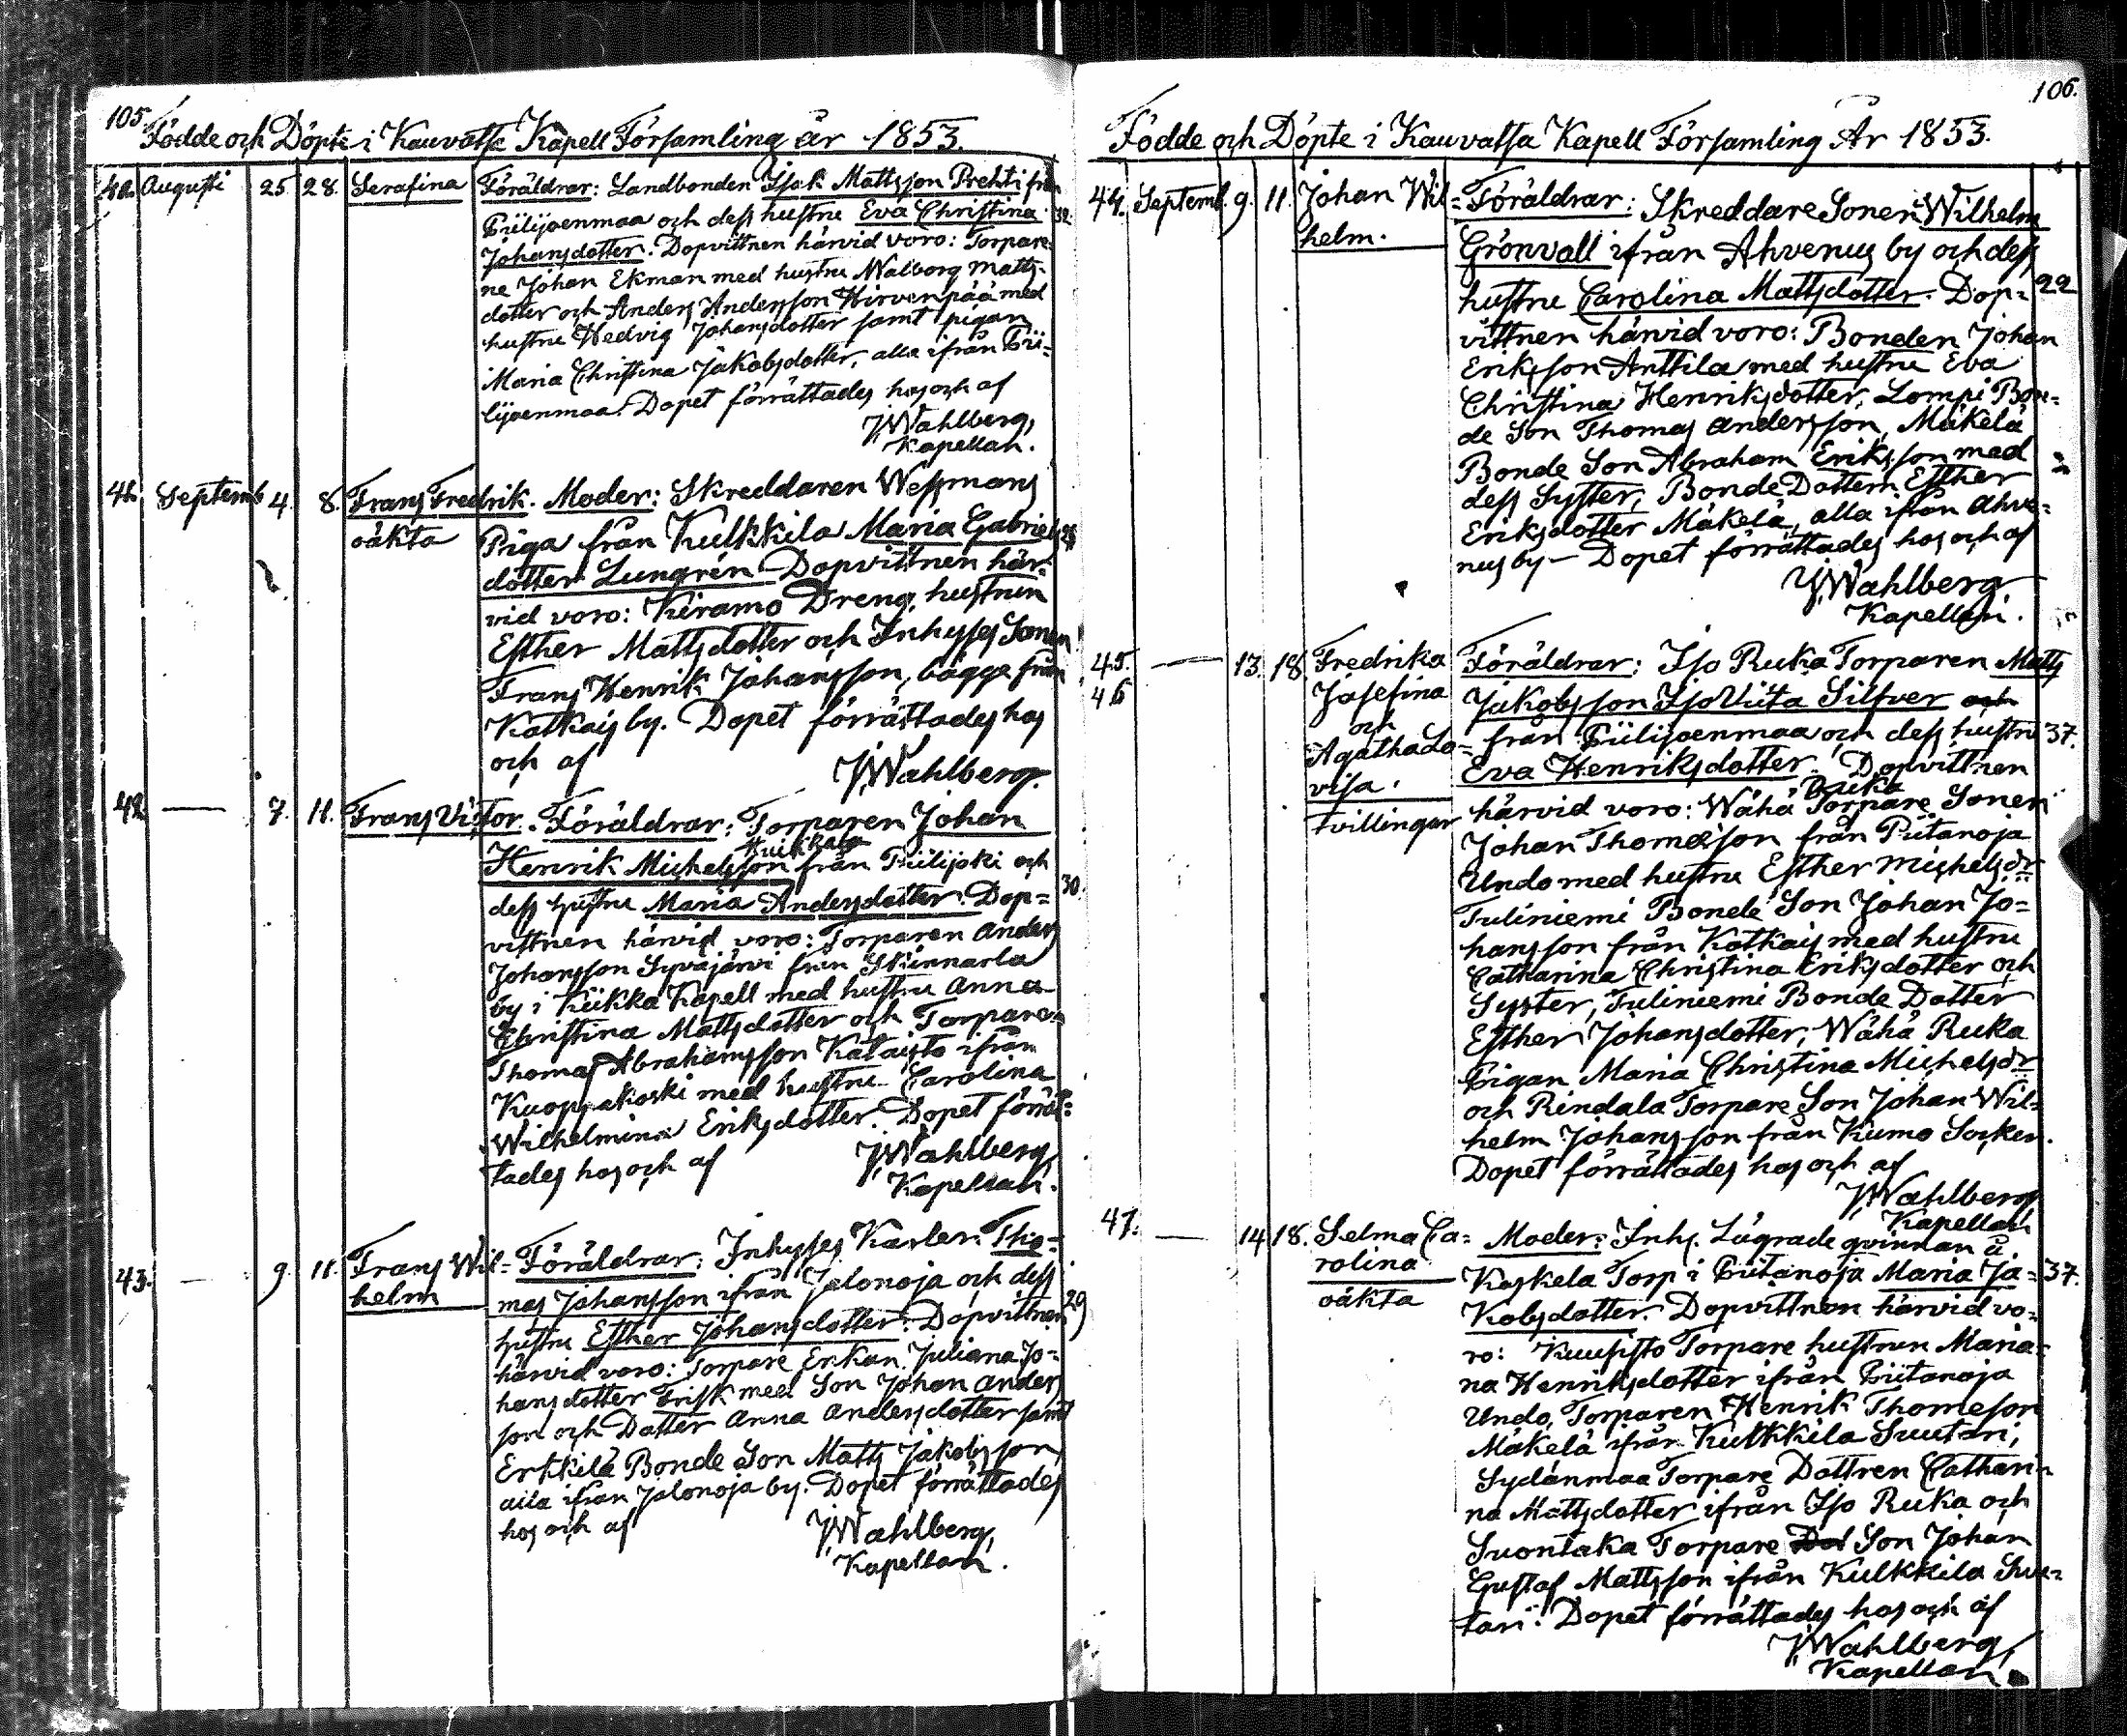 105.
Födde och Döpte i Kauvatsa Kapell Församling år 1853.
40. Augusti 25. 28. Serafina Föräldrar: Landbonden Isak Mattsson Prehti från
Piilijoenmaa och dess hustru Eva Christina 32.
Johansdotter. Dopvittnen härvid voro: Torpare-
ne Johan Ekman med hustru Walborg Matts-
dotter och Anders Andersson Hirvenpää med
hustru Hedvig Johansdotter samt pigan
Maria Christina Jakobsdotter, alla ifrån Pii-
lijoenmaa. Dopet förrättades hos och af
JWahlberg,
Kapellan.
41. Septemb. 4. 8. Frans Fredrik. Moder: Skreddaren Wessmans
oäkta Piga från Kulkkila Maria Gabriels 28.
dotter Lungrén Dopvittnen här-
vid voro: Kiramo Dreng, hustrun
Esther Mattsdotter och Inhyses Sonen
Frans Henrik Johansson, bägge från
Katkais by. Dopet förrättades hos
och af
JWahlberg.
42. — 7. 11. Frans Victor. Föräldrar: Torparen Johan
Henrik Michelsson från Piilijoki och
dess hustru Maria Andersdotter. Dop- 30.
vittnen härvid voro: Torparen Anders
Johansson Syväjärvi från Skinnarla
by i Kiikka Kapell med hustru Anna
Christina Mattsdotter och Torparen
Thomas Abrahamsson Kataisto ifrån
Kuoppakoski med hustru Carolina
Wilhelmina Eriksdotter. Dopet förrät-
tades hos och af JWahlberg,
Kapellan.
43. — 9. 11. Frans Wil- Föräldrar: Inhyses Karlen Tho-
helm mas Johansson ifrån Jalonoja och dess
hustru Esther Johansdotter. Dopvittnen 29
härvid voro: Torpare Enkan Juliana Jo-
hansdotter Frisk med Son Johan Anders
son och Dotter Anna Andersdotter samt
Erkkilä Bonde Son Matts Jakobsson
alla ifrån Jalonoja by. Dopet förrättades
hos och af JWahlberg,
Kapellan.
106.
Födde och Döpte i Kauvatsa Kapell Församling År 1853.
44. Septemb. 9. 11. Johan Wil- Föräldrar: Skreddare Sonen Wilhelm
helm. Grönvall ifrån Ahvenus by och dess
hustru Carolina Mattsdotter. Dop- 22
vittnen härvid voro: Bonden Johan
Eriksson Anttila med hustru Eva
Christina Henriksdotter, Lompi Bon-
de Son Thomas Andersson, Mäkelä
Bonde Son Abraham Eriksson med
dess Syster, Bonde Dottern Esther
Eriksdotter Mäkelä, alla ifrån Ahve-
nus by – Dopet förrättades hos och af
JWahlberg
Kapellan.
45. — 13. 18. Fredrika Föräldrar: Iso Ruka Torparen Matts
46 Josefina Jakobsson Isoviita Silfver och
och från Piilijoenmaa och dess hustru 37.
Agatha Lo- Eva Henriksdotter. Dopvittnen
visa. Ruka
tvillingar härvid voro: Wähä Torpare Sonen
Johan Thomasson från Piitanoja
Undo med hustru Esther Michelsdr
Tuliniemi Bonde Son Johan Jo-
hansson från Katkais med hustru
Catharina Christina Eriksdotter och
Syster, Tuliniemi Bonde Dotter
Esther Johansdotter, Wähä Ruka
Pigan Maria Christina Michelsdr
och Rindala Torpare Son Johan Wil-
helm Johansson från Kumo Socken.
Dopet förrättades hos och af
JWahlberg
Kapellan
47. — 14. 18. Selma Ca- Moder: Inhy. Lägrade qvinnan å
rolina Koskela Torp i Piitanoja Maria Ja- 37.
oäkta kobsdotter. Dopvittnen härvid vo-
ro: Kuusisto Torpare hustrun Maria-
na Henriksdotter ifrån Piitanoja
Undo, Torparen Henrik Thomeson
Mäkelä ifrån Kulkkila Suutari,
Sydänmaa Torpare Dottren Cathari-
na Mattsdotter ifrån Iso Ruka och
Suontaka Torpare Dot Son Johan
Gustaf Mattsson ifrån Kulkkila Suu-
tari. Dopet förrättades hos och af
JWahlberg,
Kapellan.